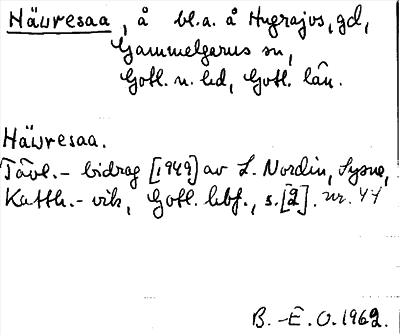 Häuresaa, å bl.a. å Hugrajvs, gd,
Gammelgarns sn,
Gotl. n. hd, Gotl. län.
Häuresaa.
Tävl.- bidrag [1949] av L. Nordin, Sysne,
Katth.- vik, Gotl. hbf., s.[2]. nr. 47
B. -E. O. 1962.